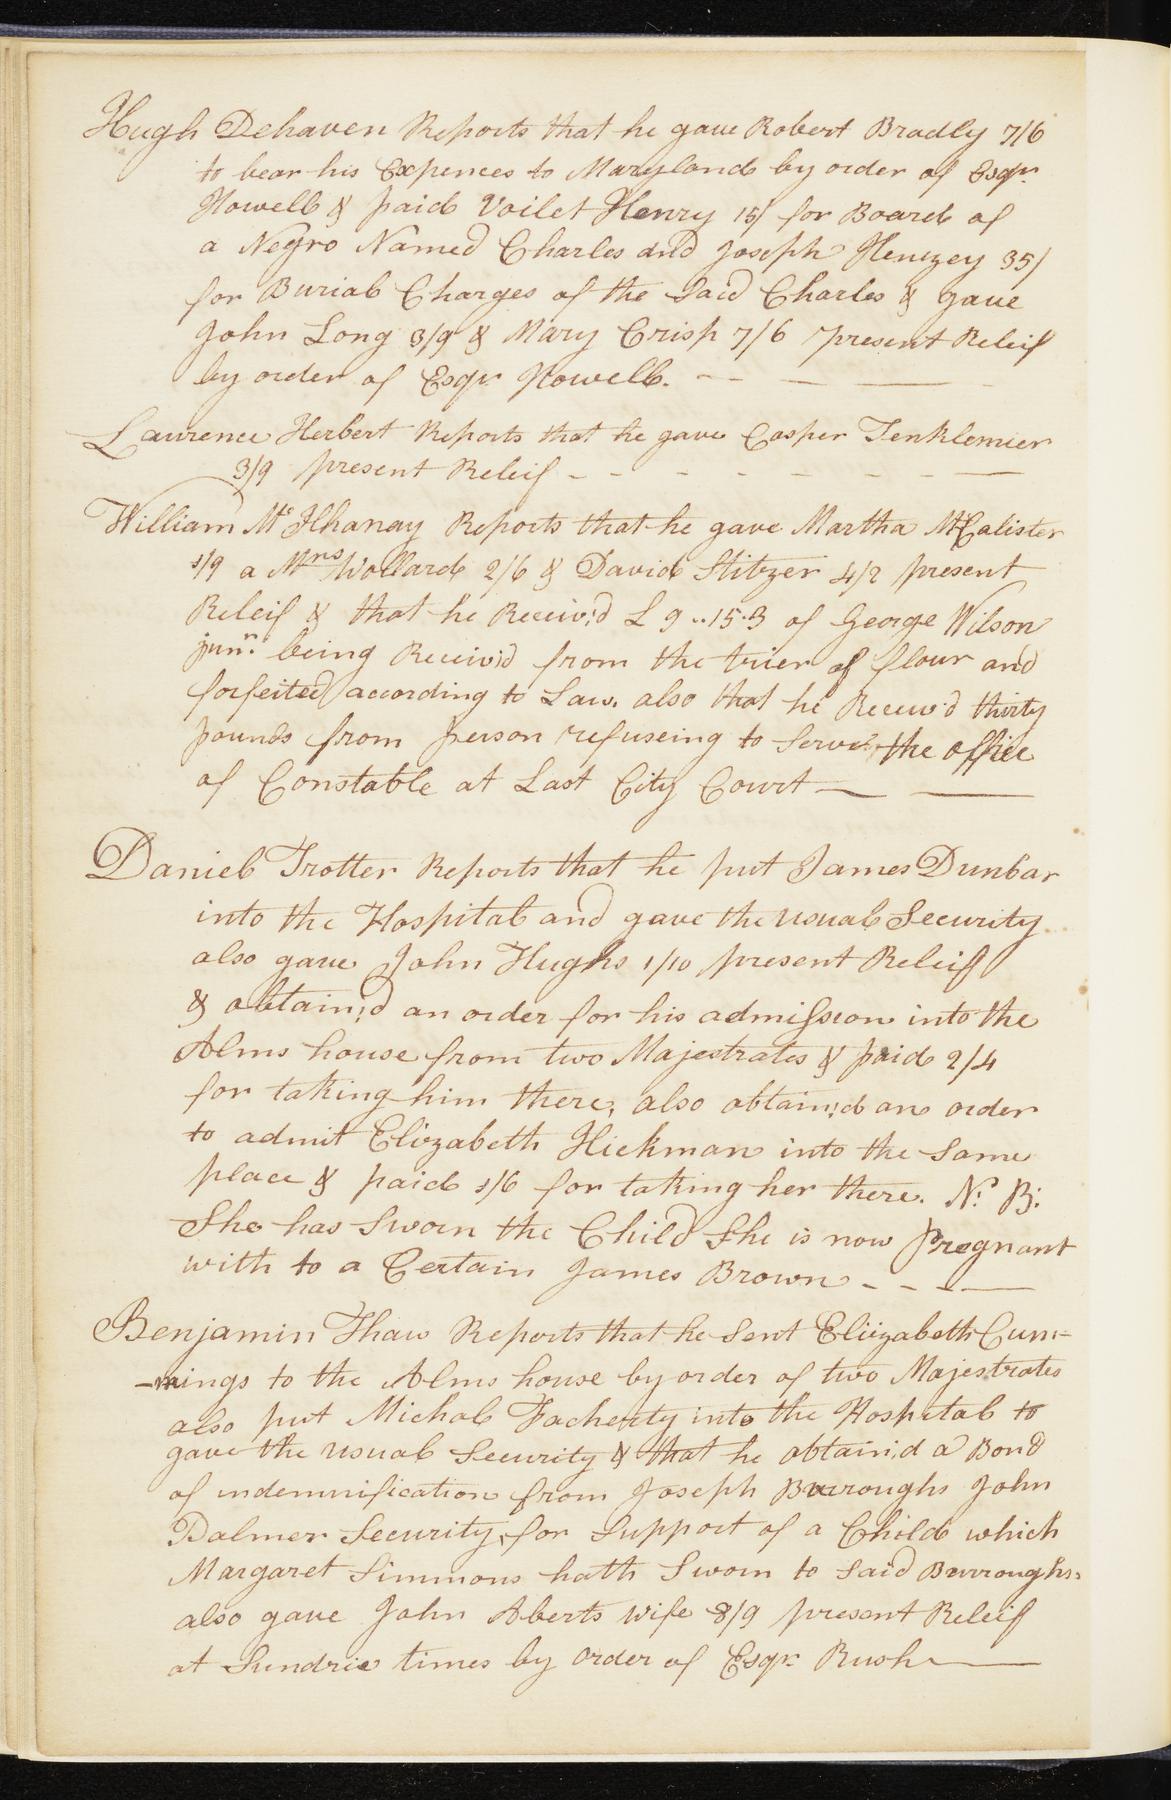 Hugh Dehaven Reports that he gave Robert Bradly 7/6
to bear his Expences to Maryland by order of Esqr
Howell & paid Voilet Henry 15/ for Board of
a Negro Named Charles and Joseph Henszey 35/
for Burial Charges of the Said Charles & gave
John Long 3/9 & Mary Crisp 7/6 present Releif
by order of Esqr Howell.
Laurence Herbert Reports that he gave Casper Tenklemier
3/9 present Releif
William Mc Ilhanay Reports that he gave Martha McCalister
3/9 a Mrs Wollard 2/6 & David Stitzer 4/2 present
Releif & that he Receiv'd L 9..15.3 of George Wilson
junr. being Receiv'd from the trier of flour and
forfeited according to Law. also that he Receiv'd thirty
pounds from person refuseing to Serve the office
of Constable at Last City Court
Daniel Trotter Reports that he put James Dunbar
into the Hospital and gave the usual Security
also gave John Hughs 1/10 present Releif
& obtain'd an order for his admission into the
Alms house from two Majestrates & paid 2/4
for taking him there, also obtain'd an order
to admit Elizabeth Hickman into the Same
place & paid 1/6 for taking her there. N. B.
She has Sworn the Child She is now Pregnant
with to a Certain James Brown
Benjamin Thaw Reports that he Sent Elizabeth Cum-
-mings to the Alms house by order of two Majestrates
also put Michal Facherty into the Hospital to
gave the usual Security & that he obtain'd a Bond
of indemnification from Joseph Burroughs John
Palmer Security for Support of a Child which
Margaret Simmons hath Sworn to Said Burroughs.
also gave John Aberts wife 8/9 present Releif
at Sundrie times by order of Esqr Rush